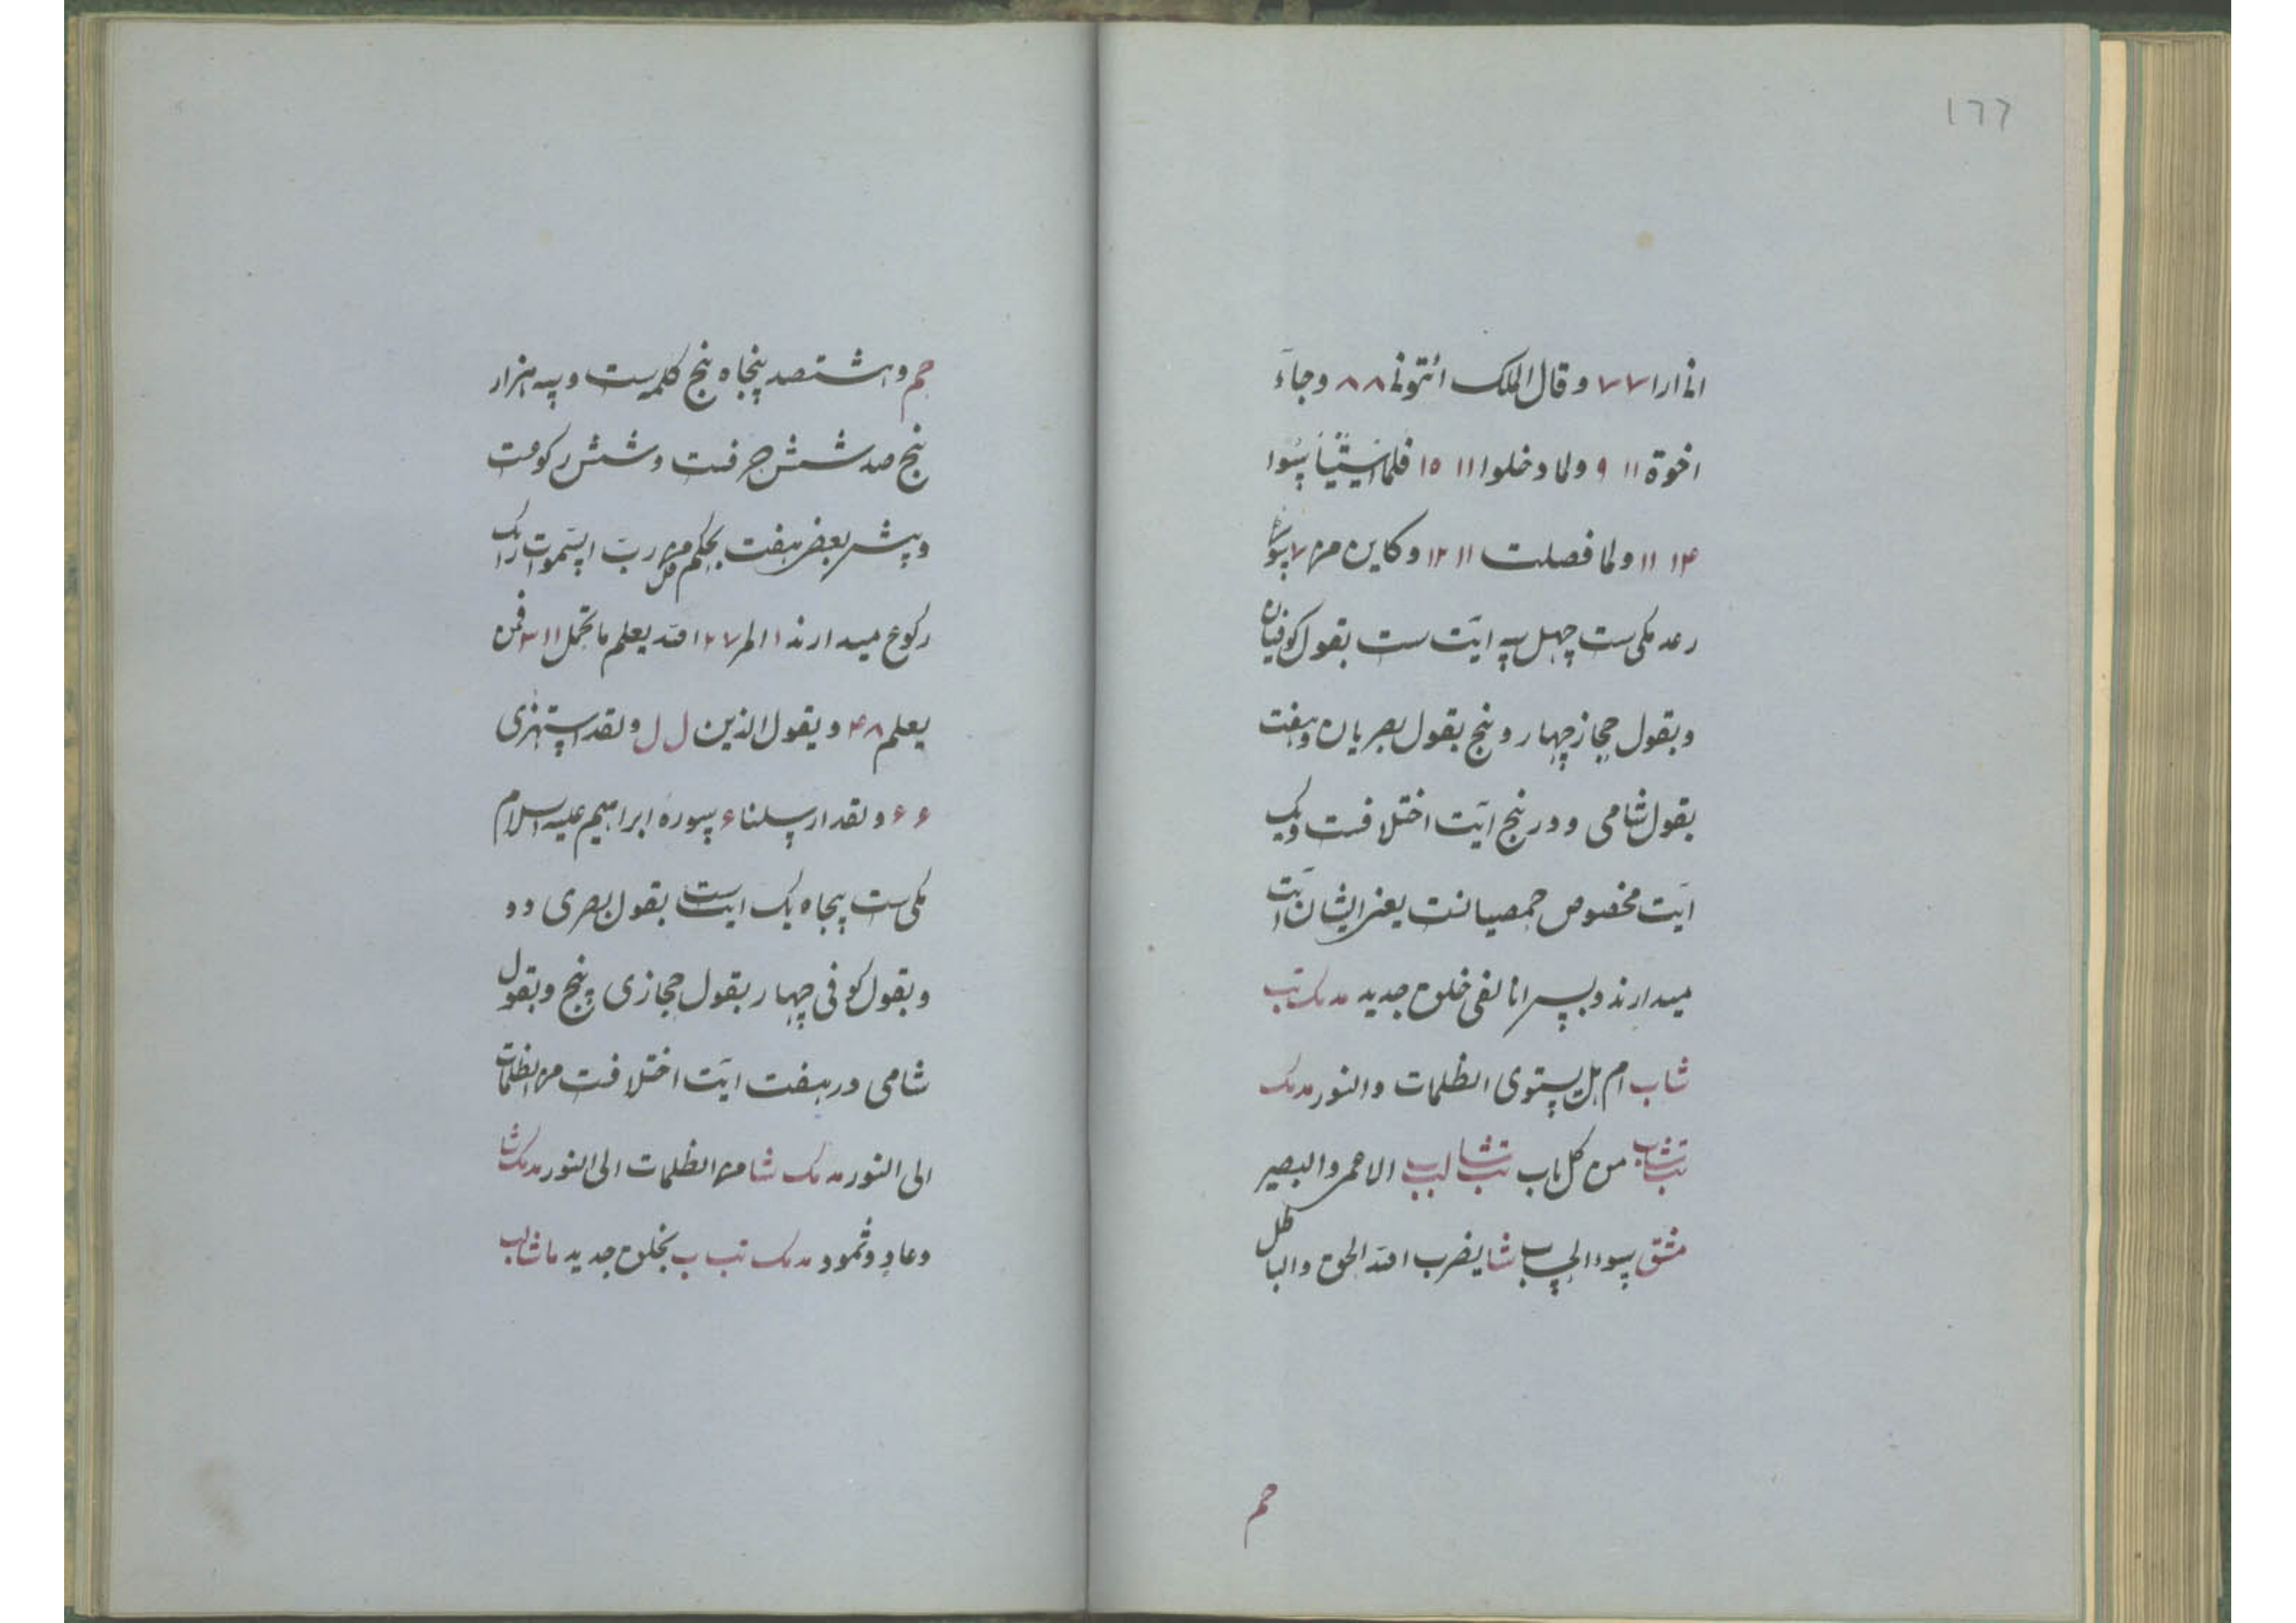 ۱۶۶
انی ارا ۷ ۷ و قال الملک ائتونی ۸ ۸ و جاءَ
اخوة ۱۱ ۹ و لما دخلوا ۱۱ ۱۵ فلما استیئسوا
۱۴ ۱۱ و لما فصلت ۱۱ ۱۲ و کاین من ۷
رعد مکی ست چهل سه ایت ست بقول کوفیان
و بقول حجاز چهار و پنج بقول بصریان و هفت
بقول شامی و در پنج ایت اختلافست و یک
ایت مخصوص حمصیانست یعنی ایشان ایت
میدارند و بس انا لفی خلق جدید مد مک تب
شاب ام هل یستوی الظلمات والنور مد مک
من کل باب الاعمی والبصیر
مشق سوء الحساب شا یضرب الله الحق والباطل
حم
حم و هشتصد پنجاه پنج کلمه ست و سه هزار
پنج صد شش حرفست و شش رکوعست
و پیش بعضی هفت بحکم قل من رب السموات را یک
رکوع میدارند ۱ المر ۷ ۲ الله یعلم ما تحمل ۱۱ ۳ افمن
یعلم ۸ ۴ و یقول الذین ل ل و لقد استهزی
۶ ۶ و لقد ارسلنا ۶ سوره ابراهیم علیه السلام
مکی ست پنجاه یک ایت ست بقول بصری دو
و بقول کوفی چهار بقول حجازی پنج و بقول
شامی در هفت ایت اختلافست من الظلمات
الی النور مد مک شا من الظلمات الی النور مد مک شا
و عاد و ثمود مد مک تب ب بخلق جدید ما شا لب